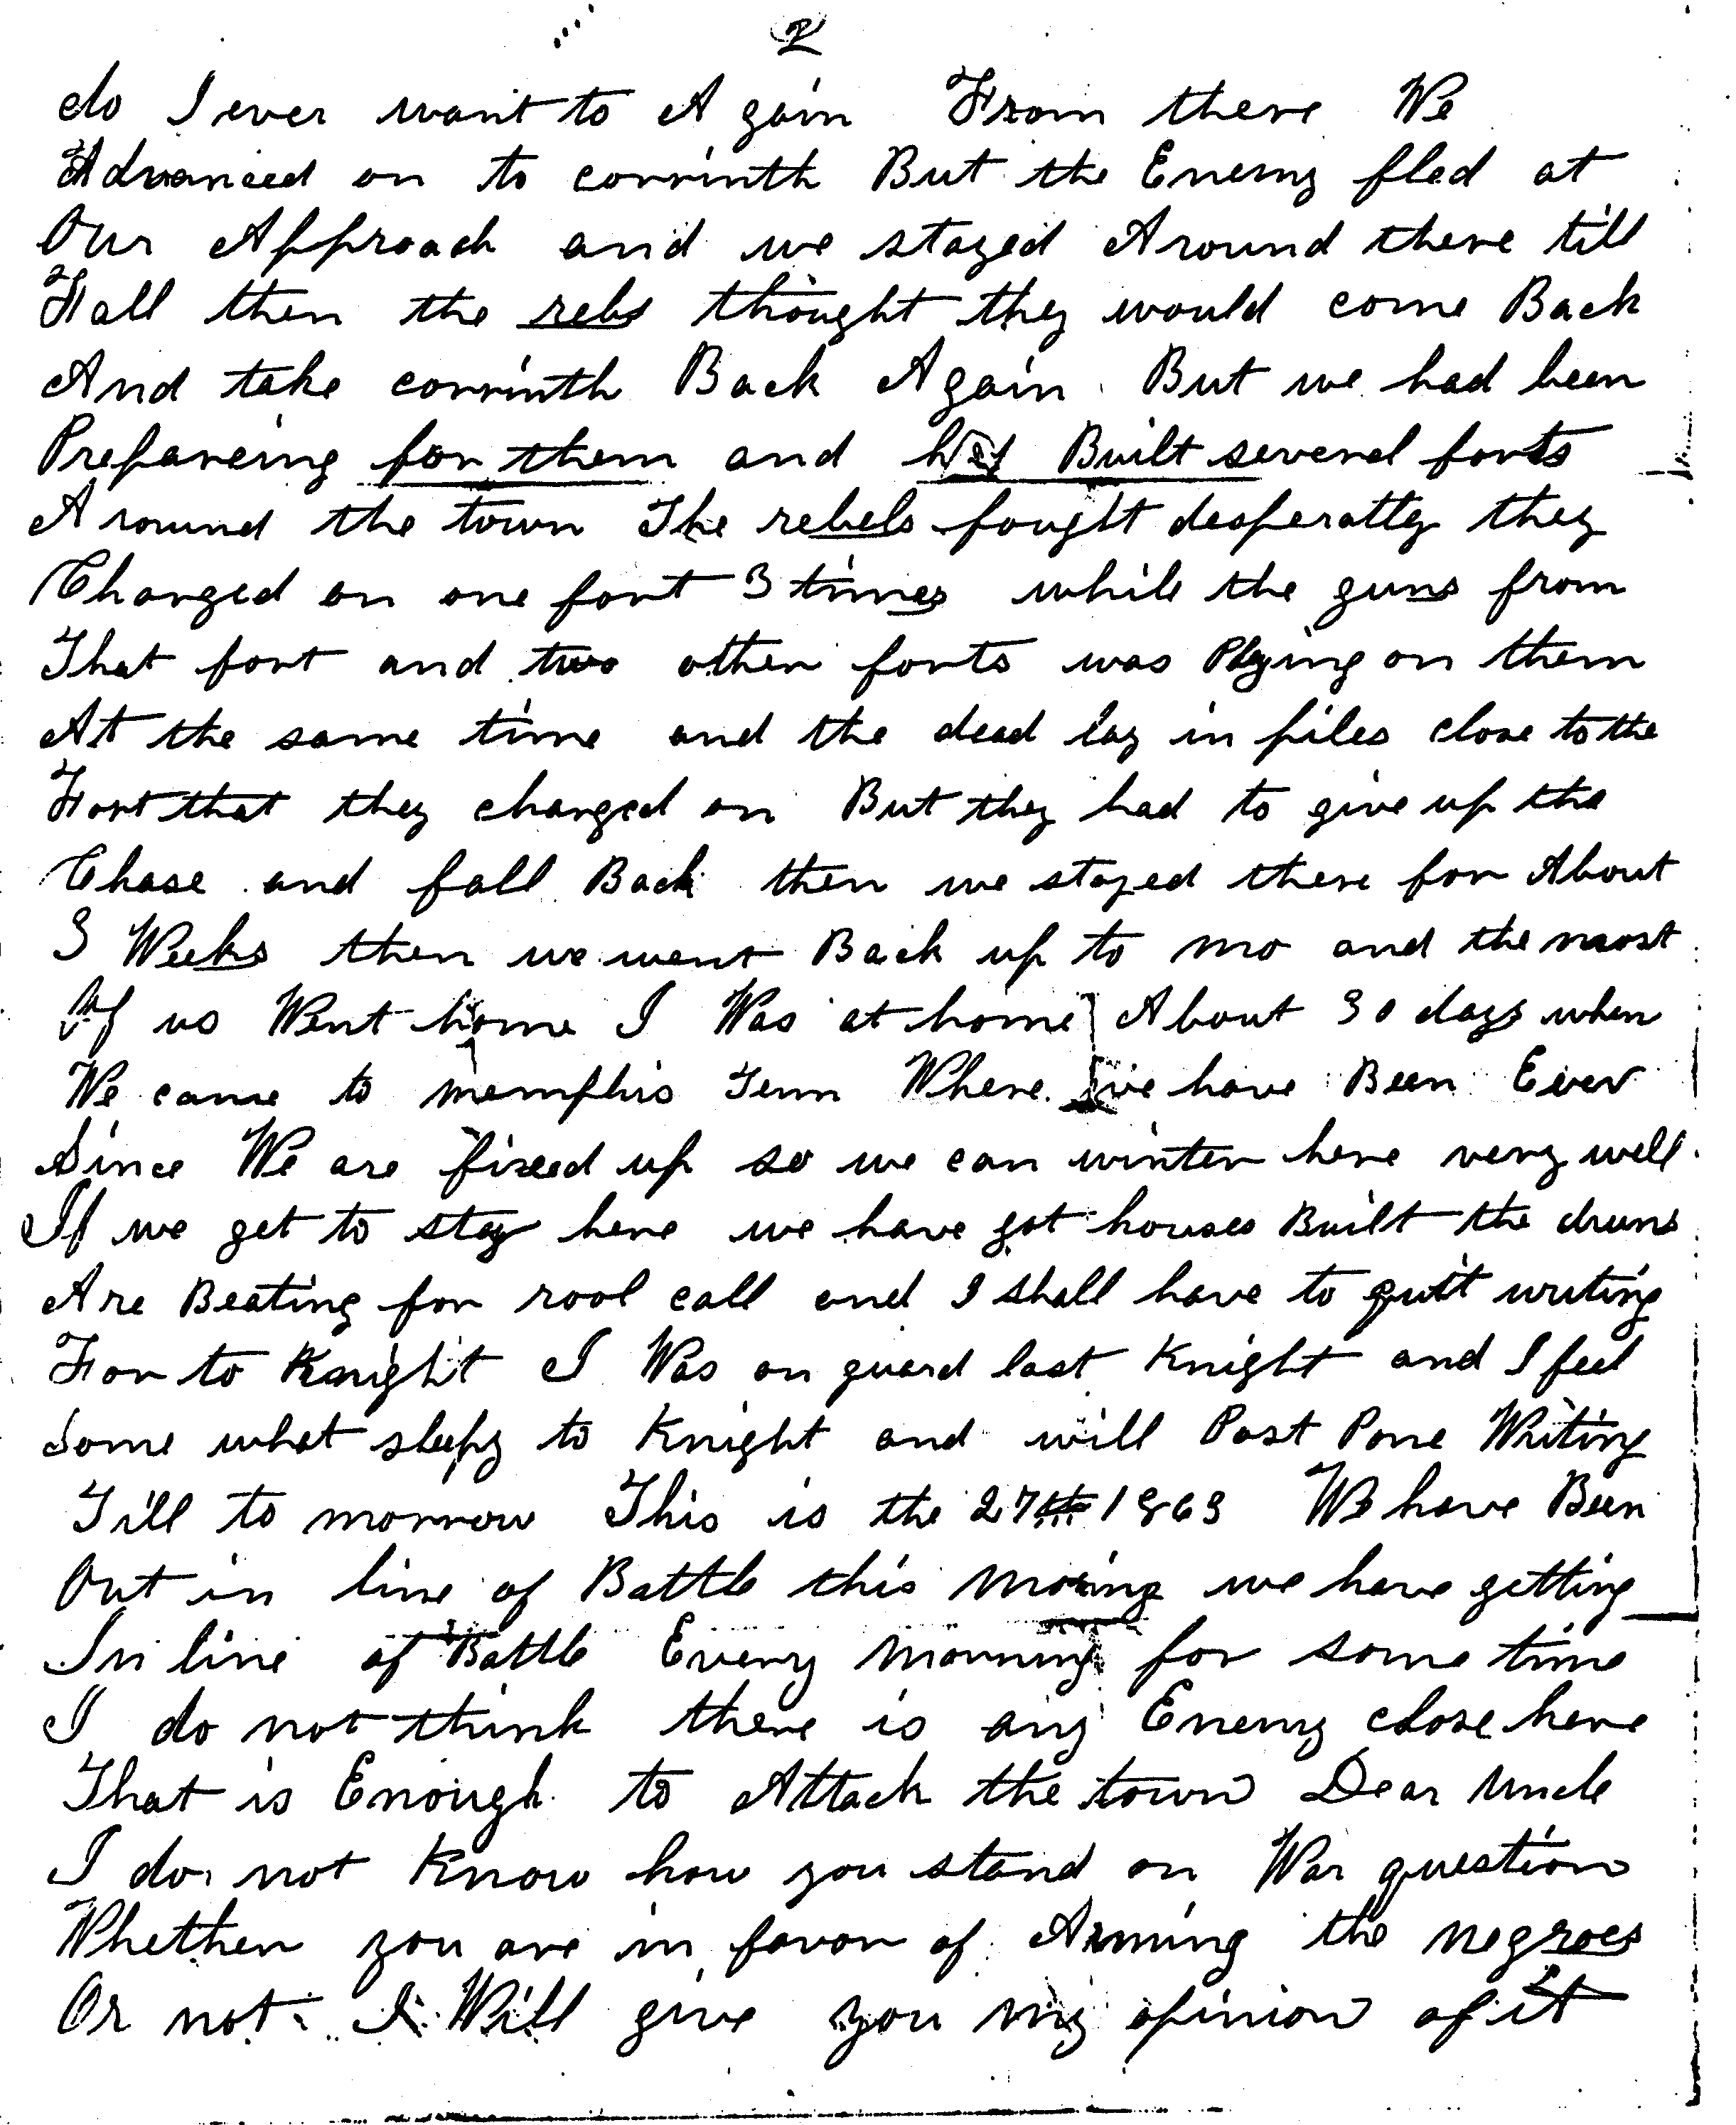 2
do I ever want to A gain From there We
Advanced on to corrinth But the Enemy fled at
Our Approach and we stayed Around there till
Fall then the rebs thought they would come Back
And take corrinth Back Again But we had been
Prepareing for them and Built several forts
Around the town The rebels fought desperatly they
Charged on one fort 3 times while the guns from
That fort and two other forts was Plying on them
At the same time and the dead lay in piles close to the
Fort that they charged on But they had to give up the
Chase and fall Back then we stayed there for About
3 Weeks then we went Back up to mo and the most
Of us Went home I Was at home About 30 days when
We came to memphis Tenn Where we have Been Ever
Since We are fixed up so we can winter here very well
If we get to stay here we have got houses Built the drums
Are Beating for rool call and I shall have to quit writing
For to Knight I Was on guard last Knight and I feel
Some what sleepy to Knight and will Post Pone Writing
Till to morrow This is the 27th 1863 We have Been
Out in line of Battle this moring we have getting
In line of Battle Every morning for some time
I do not think there is any Enemy close here
That is Enough to Attack the town Dear Uncle
I do not Know how you stand on War question
Whether you are in favor of Arming the negroes
Or not. I Will give you my opinion of it